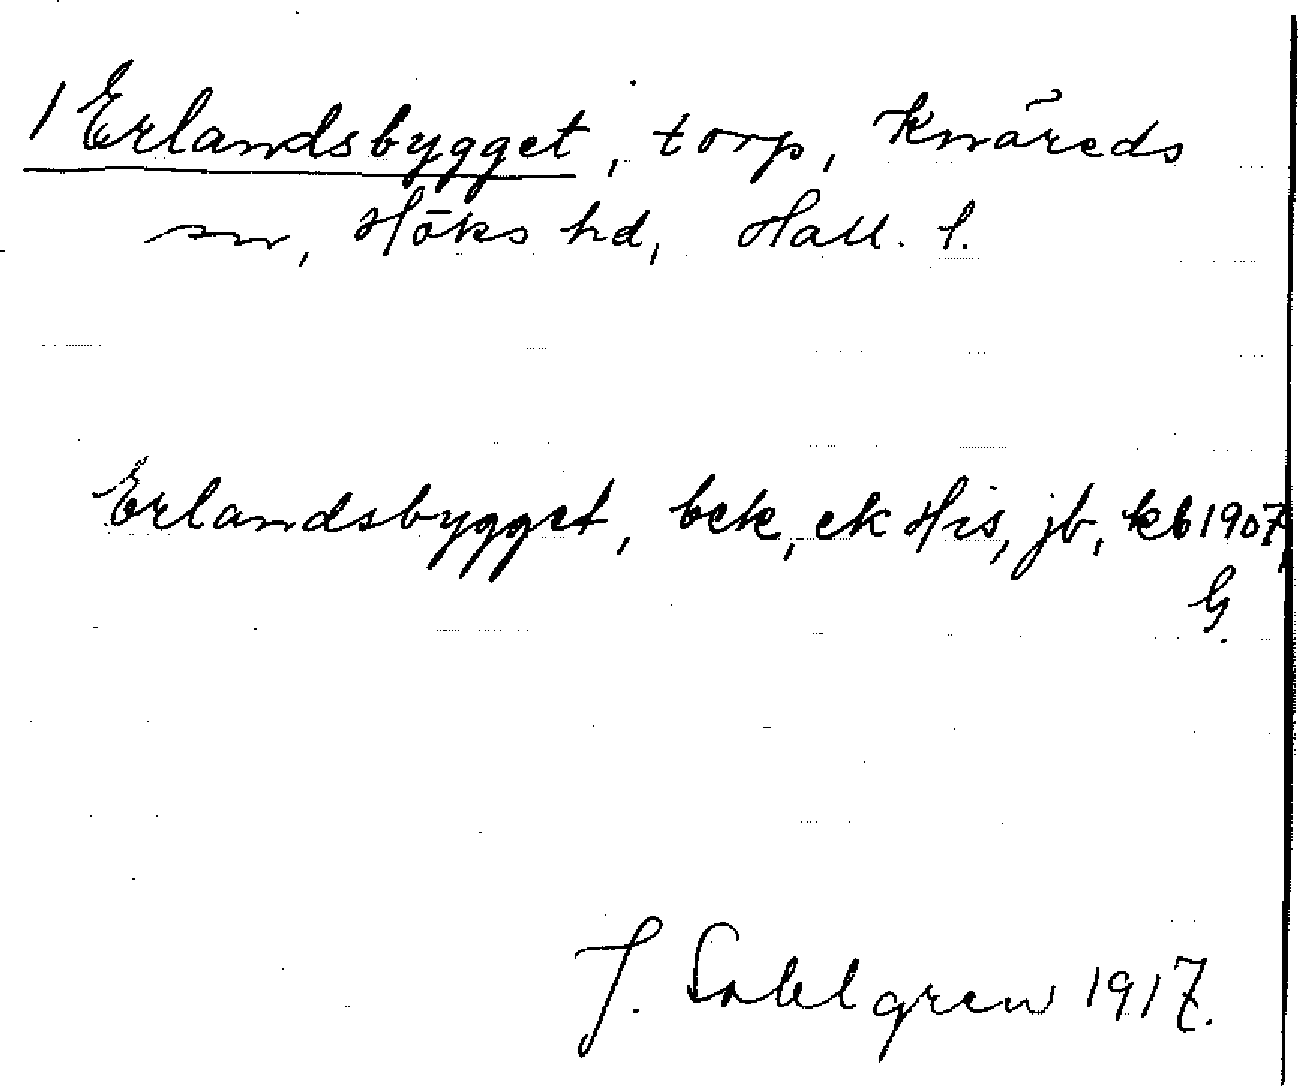 / Erlandsbygget, torp, Knäreds
sn, Höks hd, Hall. l.
Erlandsbygget, bek, ek His, jb, kb 1907,
G.
J. Sahlgren 1917.